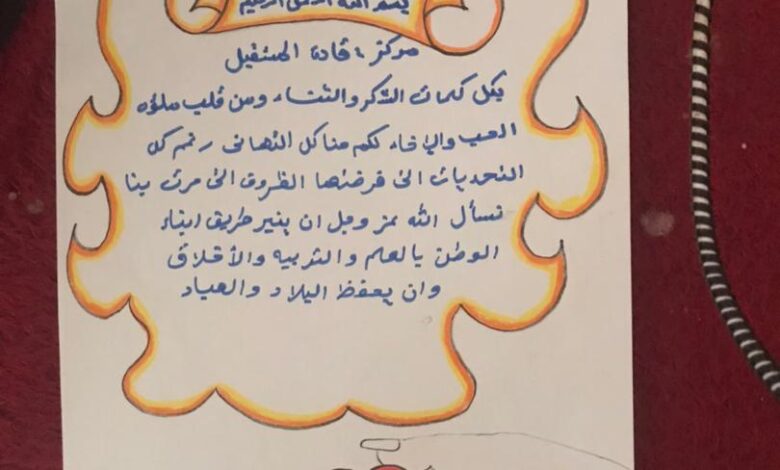 بسم الله الرحمن الرحيم
مركز قادة المستقبل
بكل كلمات الشكر والثناء ومن قلب ملؤه
الحب والإخاء لكم منا كل التهاني رغم كل
التحديات التي فرضتها الظروف التي مرت بنا
نسأل الله عز وجل ان ينير طريق ابناء
الوطن بالعلم والتربيه والأخلاق
وان يحفظ البلاد والعباد